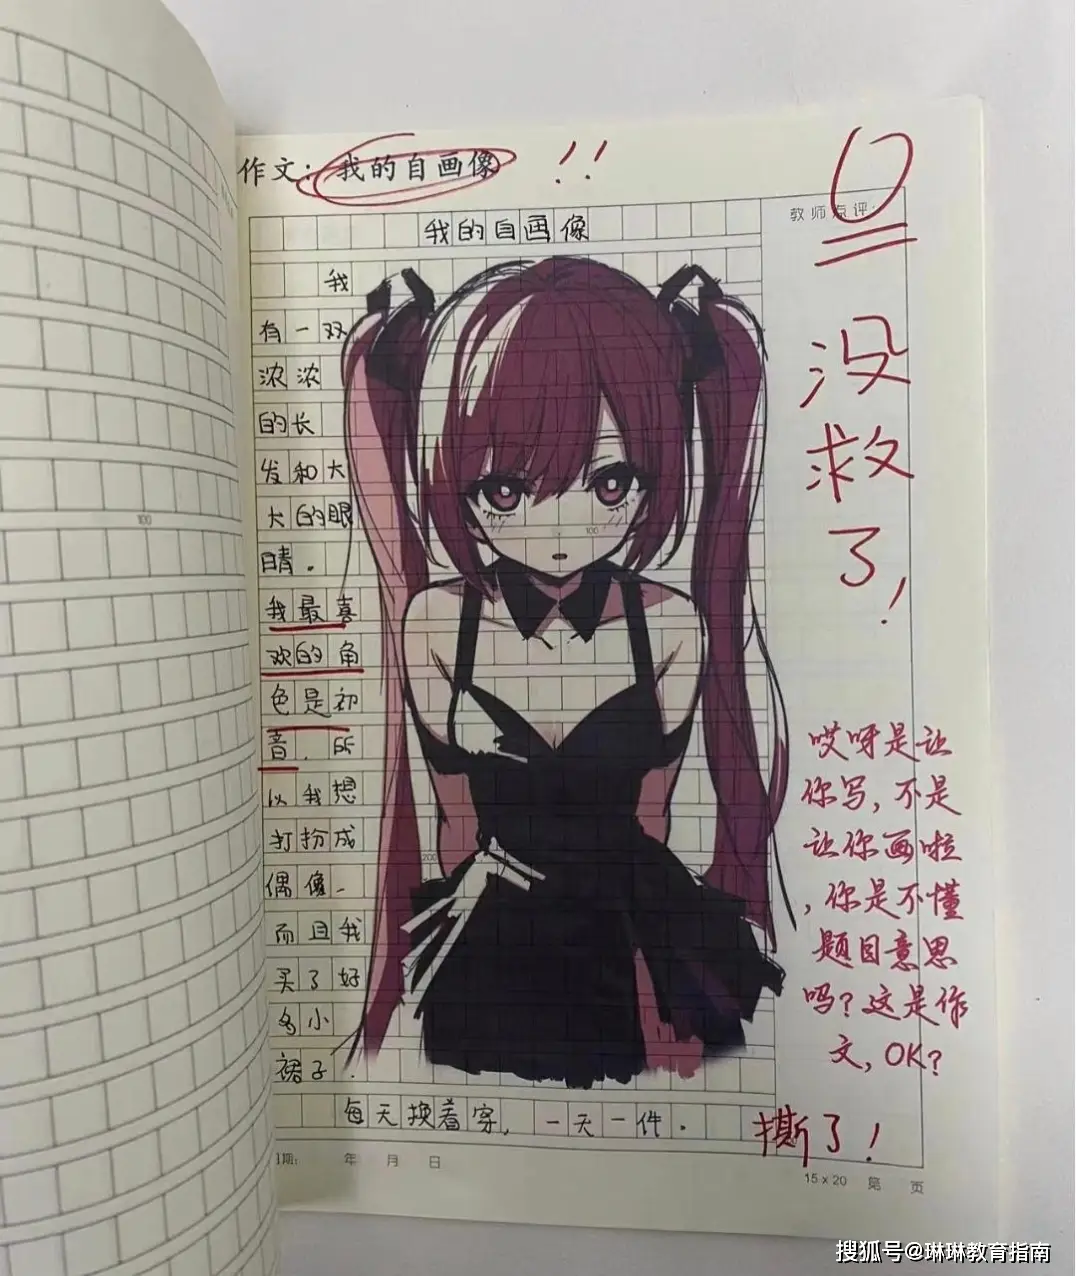 作文：我的自画像 !!
0
教师点评：
我的自画像
我
有一双
浓浓
的长
发和大
大的眼
睛。
我最喜
欢的角
色是初
音.所
以我想
打扮成
偶像.
而且我
买了好
多小
裙子.
每天换着穿,一天一件.
没
救
了!
哎呀是让
你写,不是
让你画啦
,你是不懂
题目意思
吗?这是作
文,OK?
撕了!
100
100
200
日期： 年 月 日
15×20 第 页
搜狐号@琳琳教育指南